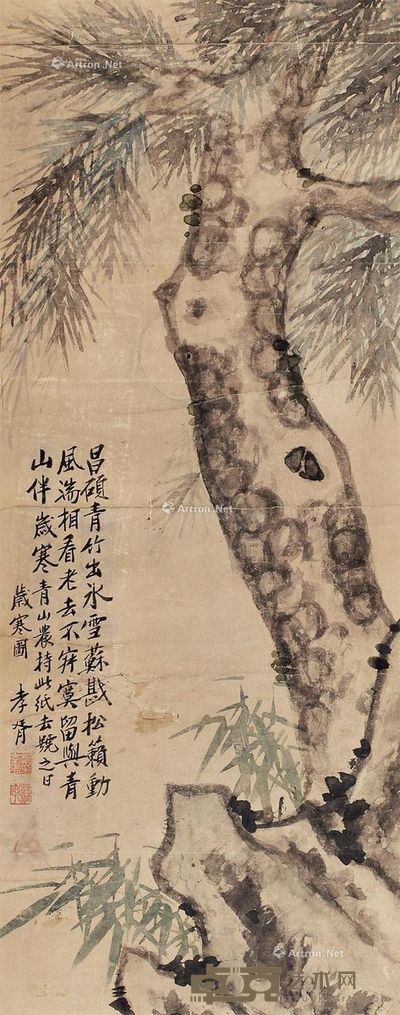 昌碩青竹出氷雪蘇戡松籟動
風湍相看老去不寂寞留與青
山伴歲寒青山農持此紙去號之曰
歲寒圖 孝胥
Artron.Net
Artron.Net
Artron.Net
Artron.Net